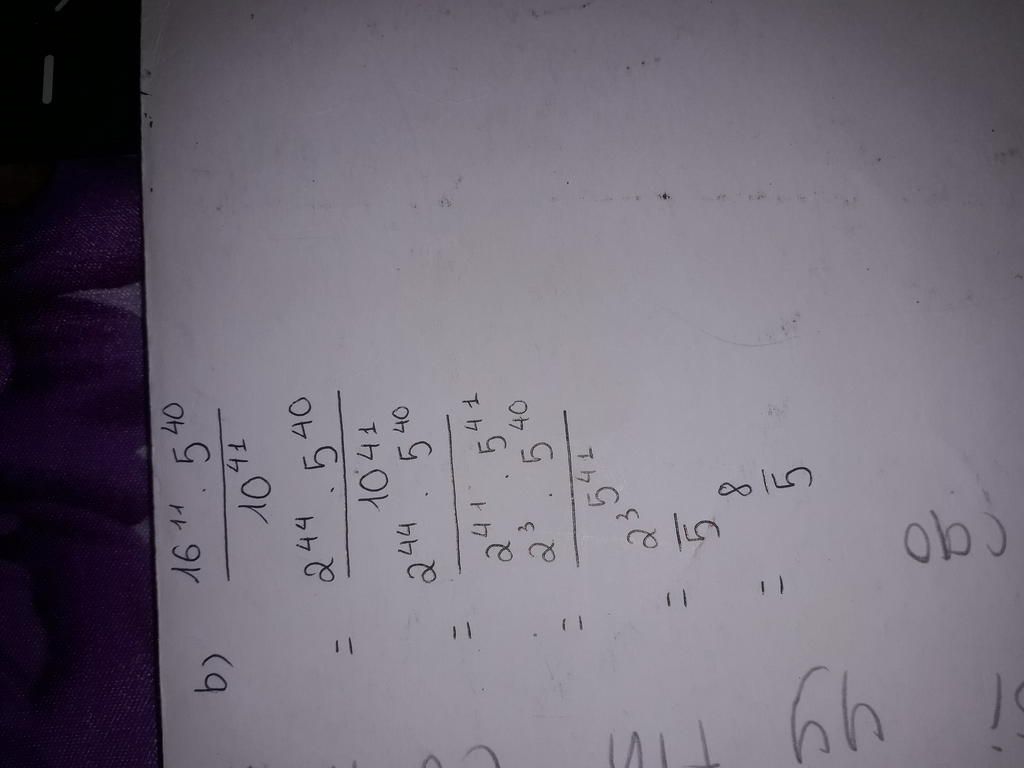 b) 16^11 · 5^40 / 10^41
= 2^44 · 5^40 / 10^41
= 2^44 · 5^40 / 2^41 · 5^41
= 2^3 · 5^40 / 5^41
= 2^3 / 5
= 8 / 5